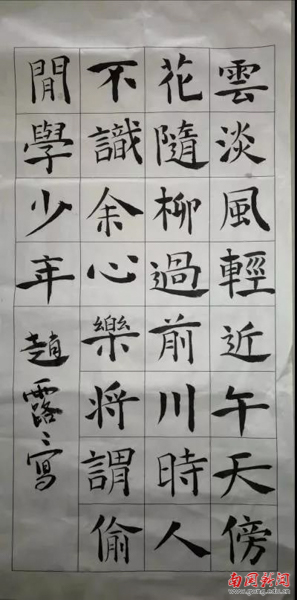 雲淡風輕近午天傍
花隨柳過前川時人
不識余心樂将謂偷
閒學少年 趙露〻寫
南国新闻